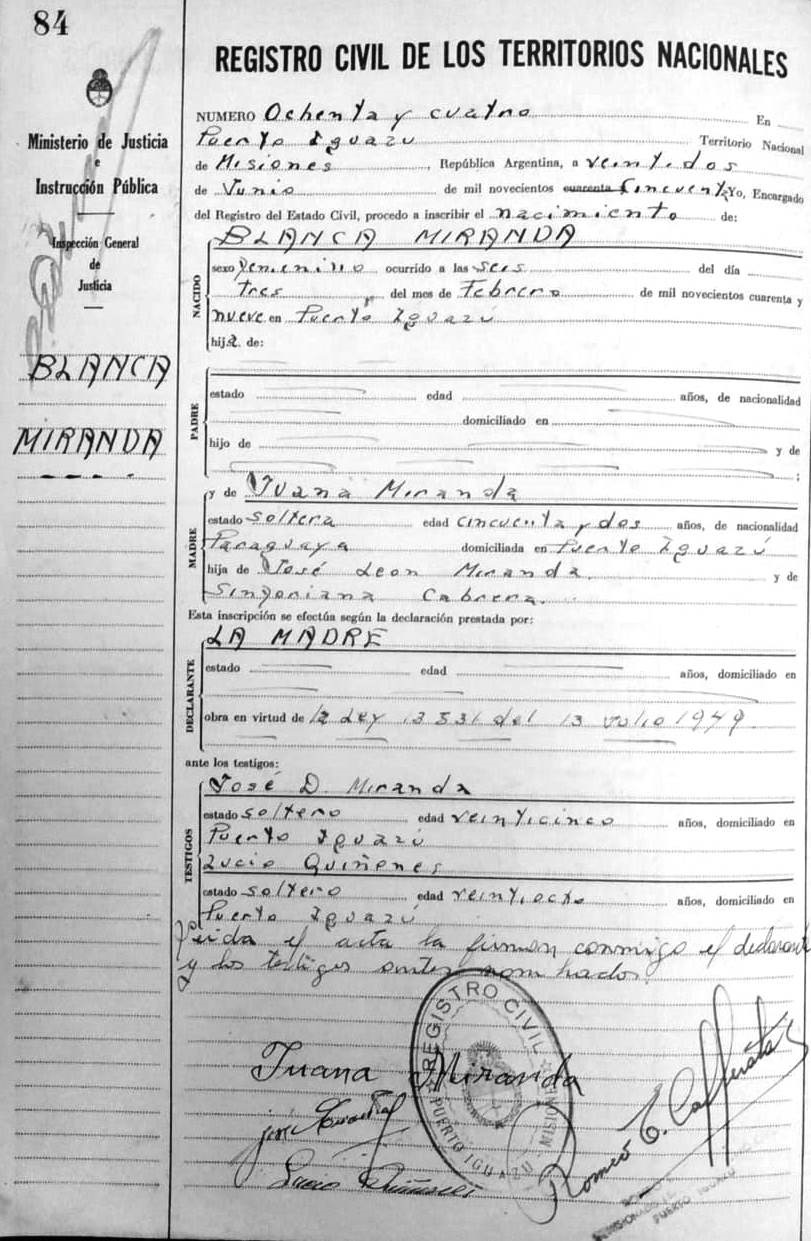 84
Ministerio de Justicia
e
Instrucción Pública
Inspección General
de
Justicia
BLANCA
MIRANDA
REGISTRO CIVIL DE LOS TERRITORIOS NACIONALES
NUMERO Ochenta y cuatro En
Puerto Iguazú Territorio Nacional
de Misiones, República Argentina, a veintidos
de Junio de mil novecientos cuarenta Cincuenta Yo, Encargado
del Registro del Estado Civil, procedo a inscribir el nacimiento de:
NACIDO
BLANCA MIRANDA
sexo femenino ocurrido a las seis del día
tres del mes de Febrero de mil novecientos cuarenta y
nueve en Puerto Iguazú
hija de:
PADRE
estado edad años, de nacionalidad
domiciliado en
hijo de y de
;
MADRE
y de Juana Miranda
estado soltera edad cincuenta y dos años, de nacionalidad
Paraguaya domiciliada en Puerto Iguazú
hija de José Leon Miranda y de
Sinforiana Cabrera.
Esta inscripción se efectúa según la declaración prestada por:
DECLARANTE
LA MADRE
estado edad años, domiciliado en
obra en virtud de la Ley 13531 del 13 Julio 1949
ante los testigos:
TESTIGOS
José D. Miranda
estado soltero edad veinticinco años, domiciliado en
Puerto Iguazú
Lucio Quiñones
estado soltero edad veintiocho años, domiciliado en
Puerto Iguazú
Leida el acta la firman conmigo el declarante
y los testigos antes nombrados.
REGISTRO CIVIL
PUERTO IGUAZU - MISIONES
Juana Miranda
José Miranda
Lucio Quiñones
Romeo E. Cafferata
PUERTO IGUAZU